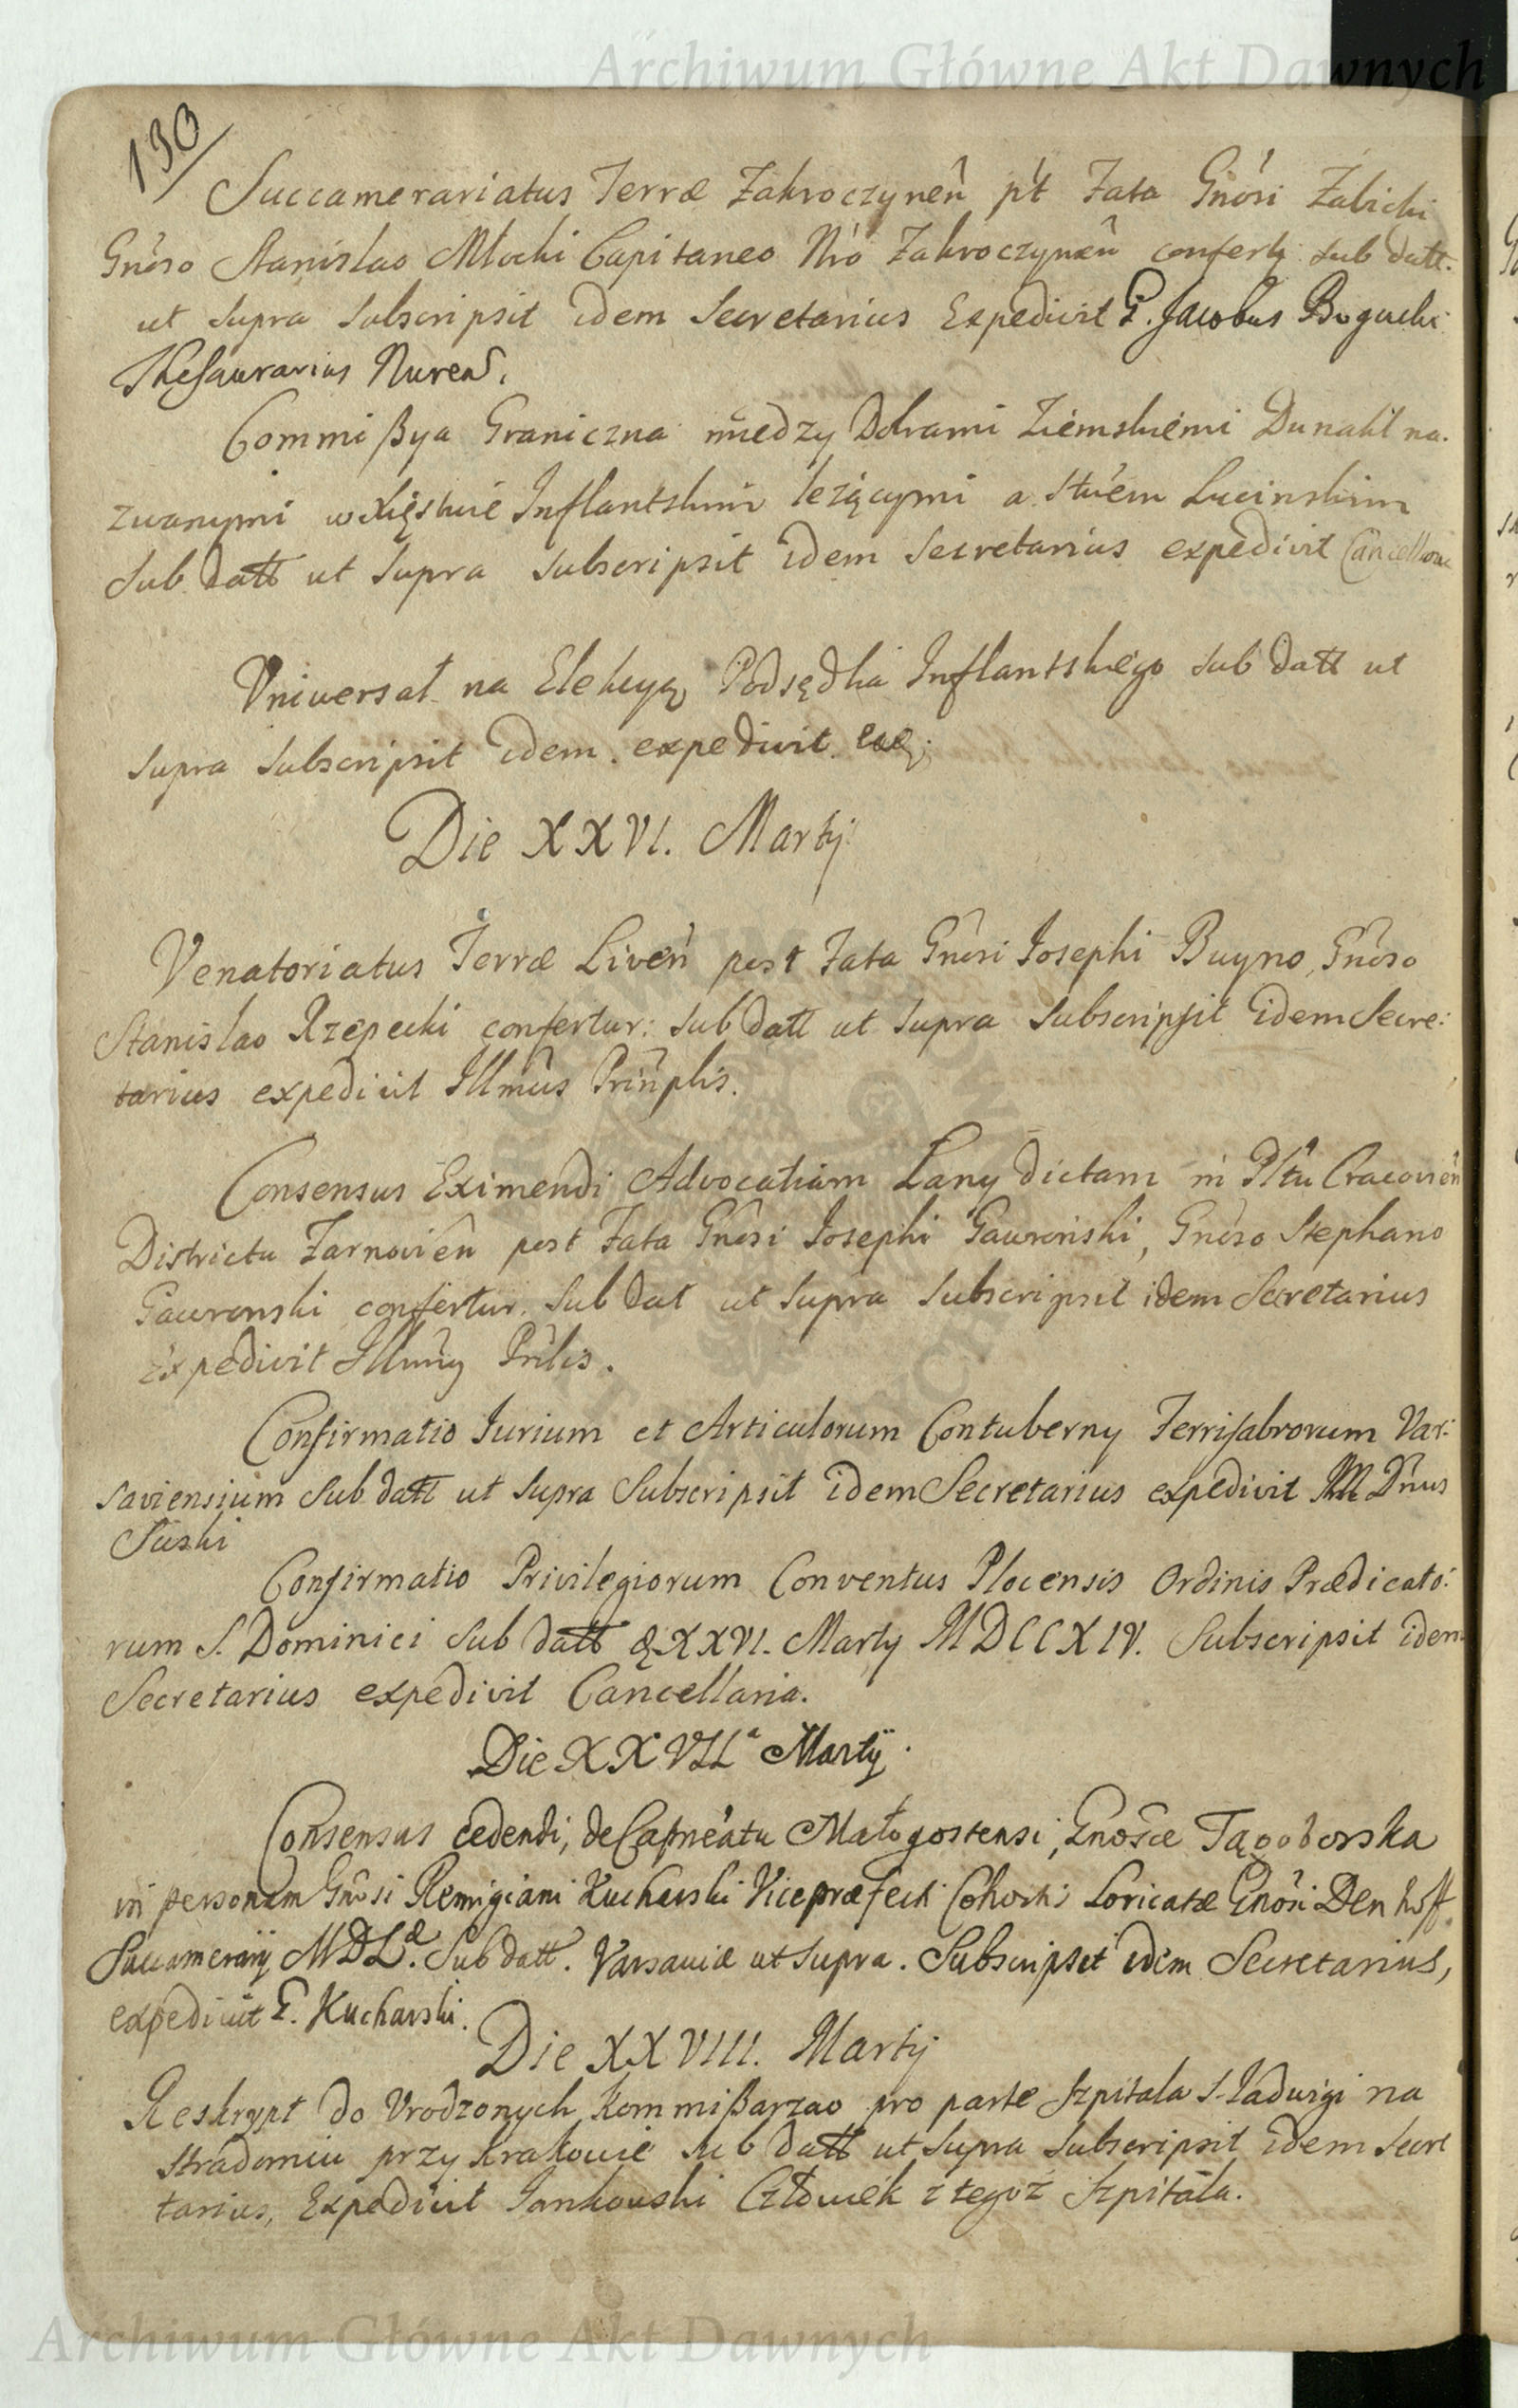 Archiwum Główne Akt Dawnych
130
Succamerariatus Terræ Zakroczynen̂ p't Fata Gnôsi Zabicki
Gnôso Stanislao Młocki Capitaneo Nrô Zakroczynen̂ confert: sub datt.
ut supra subscripsit idem Secretarius Expedivit G. Jacobus Bogucki
Thesaurarius Nuren̂.
Commißya Graniczna między Dobrami Ziemskiemi Dunakl na-
zwanymi w Xięstwie Inflantskim leżącymi a Stwem Lucinskim
sub datt ut supra subscripsit idem Secretarius expedivit Cancellaria
Vniversał na Elekcyą Podsędka Inflantskiego sub datt ut
supra subscripsit idem expedivit
Die XXVI. Martij
Venatoriatus Terræ Liven̂ post Fata Gnôsi Josephi Buyno, Gnôso
Stanislao Rzepecki confertur: sub datt ut supra subscripsit idem Secre:
tarius expedivit Illmûs Prin̂plis.
Consensus Eximendi Advocatiam Łany dictam in Pltû Cracovien̂
Districtu Zarnovien̂ post Fata Gnôsi Josephi Gawronski, Gnôso Stephano
Gawronski confertur. sub dat ut supra subscripsit idem Secretarius
Expedivit Illmûs Prîlis.
Confirmatio Iurium et Articulorum Contuberny Ferrifabrorum Var:
saviensium sub datt ut supra Subscripsit idem Secretarius expedivit M Dn̂us
Suski
Confirmatio Privilegiorum Conventus Plocensis Ordinis Prædicato:
rum S. Dominici sub datt XXVI. Martij MDCCXIV. Subscripsit idem
Secretarius expedivit Cancellaria.
Die XXVII.ª Martij.
Consensus cedendi, de Capn̂eatu Małogostensi, Gnôsæ Tągoborska
in personam Gnôsi Remigiani Kucharski Vicepræfecti Cohortis Loricatæ Gnôsi Denhoff
Succamerarij MDL.æ Sub datt. Varsaviæ ut supra. Subscripsit idem Secretarius,
expedivit G. Kucharski.
Die XXVIII. Martij
Reskrypt do Vrodzonych Kommißarzow pro parte Szpitala S. Jadwigi na
Stradomiu przy Krakowie sub datt ut supra subscripsit idem Secre
tarius, Expedivit Jankowski Człowiek z tegoż Szpitala.
Archiwum Główne Akt Dawnych